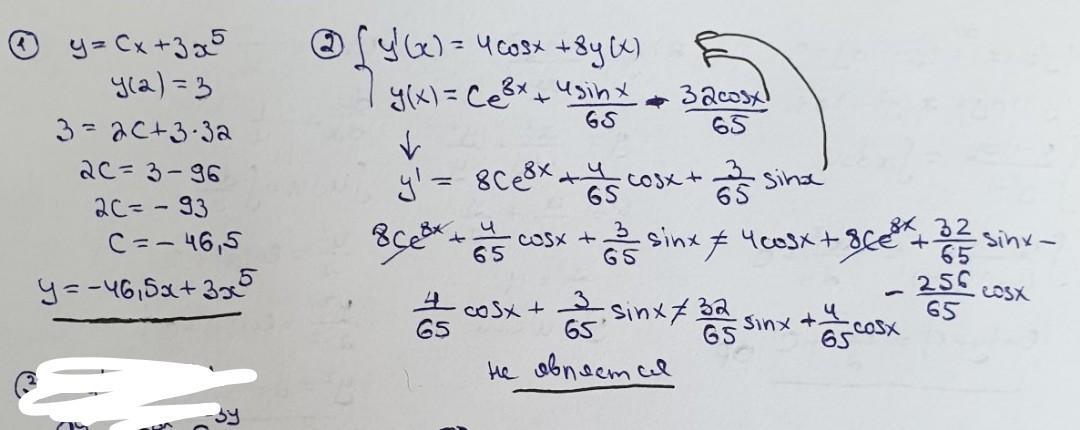 ① y = Cx + 3x⁵
y(2) = 3
3 = 2C + 3·32
2C = 3 – 96
2C = – 93
C = – 46,5
y = –46,5x + 3x⁵
② { y'(x) = 4cosx + 8y(x)
y(x) = Ce⁸ˣ + 4sinx/65 - 32cosx/65
↓
y' = 8Ce⁸ˣ + 4/65 cosx + 3/65 sinx
8Ce⁸ˣ + 4/65 cosx + 3/65 sinx ≠ 4cosx + 8Ce⁸ˣ + 32/65 sinx –
– 256/65 cosx
4/65 cosx + 3/65 sinx ≠ 32/65 sinx + 4/65 cosx
не является
③
3y